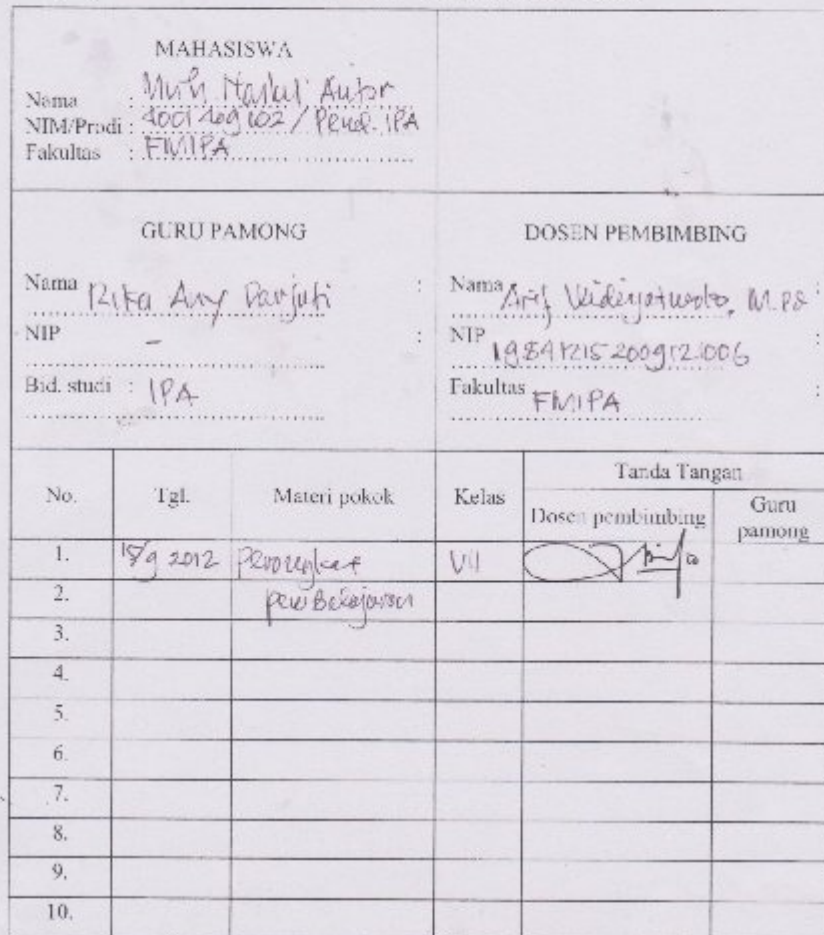 MAHASISWA
Nama : Muh
NIM/Prodi : 4001409102 / Pend. IPA
Fakultas : FMIPA
GURU PAMONG
Nama Rika Any :
NIP - :
Bid. studi : IPA
DOSEN PEMBIMBING
Nama Arif Widiyatmoko, M.Pd :
NIP 198412152009121006 :
Fakultas FMIPA :
No. Tgl. Materi pokok Kelas Tanda Tangan
Dosen pembimbing Guru pamong
1. 2012 Perangkat VII
2. pembelajaran
3.
4.
5.
6.
7.
8.
9.
10.